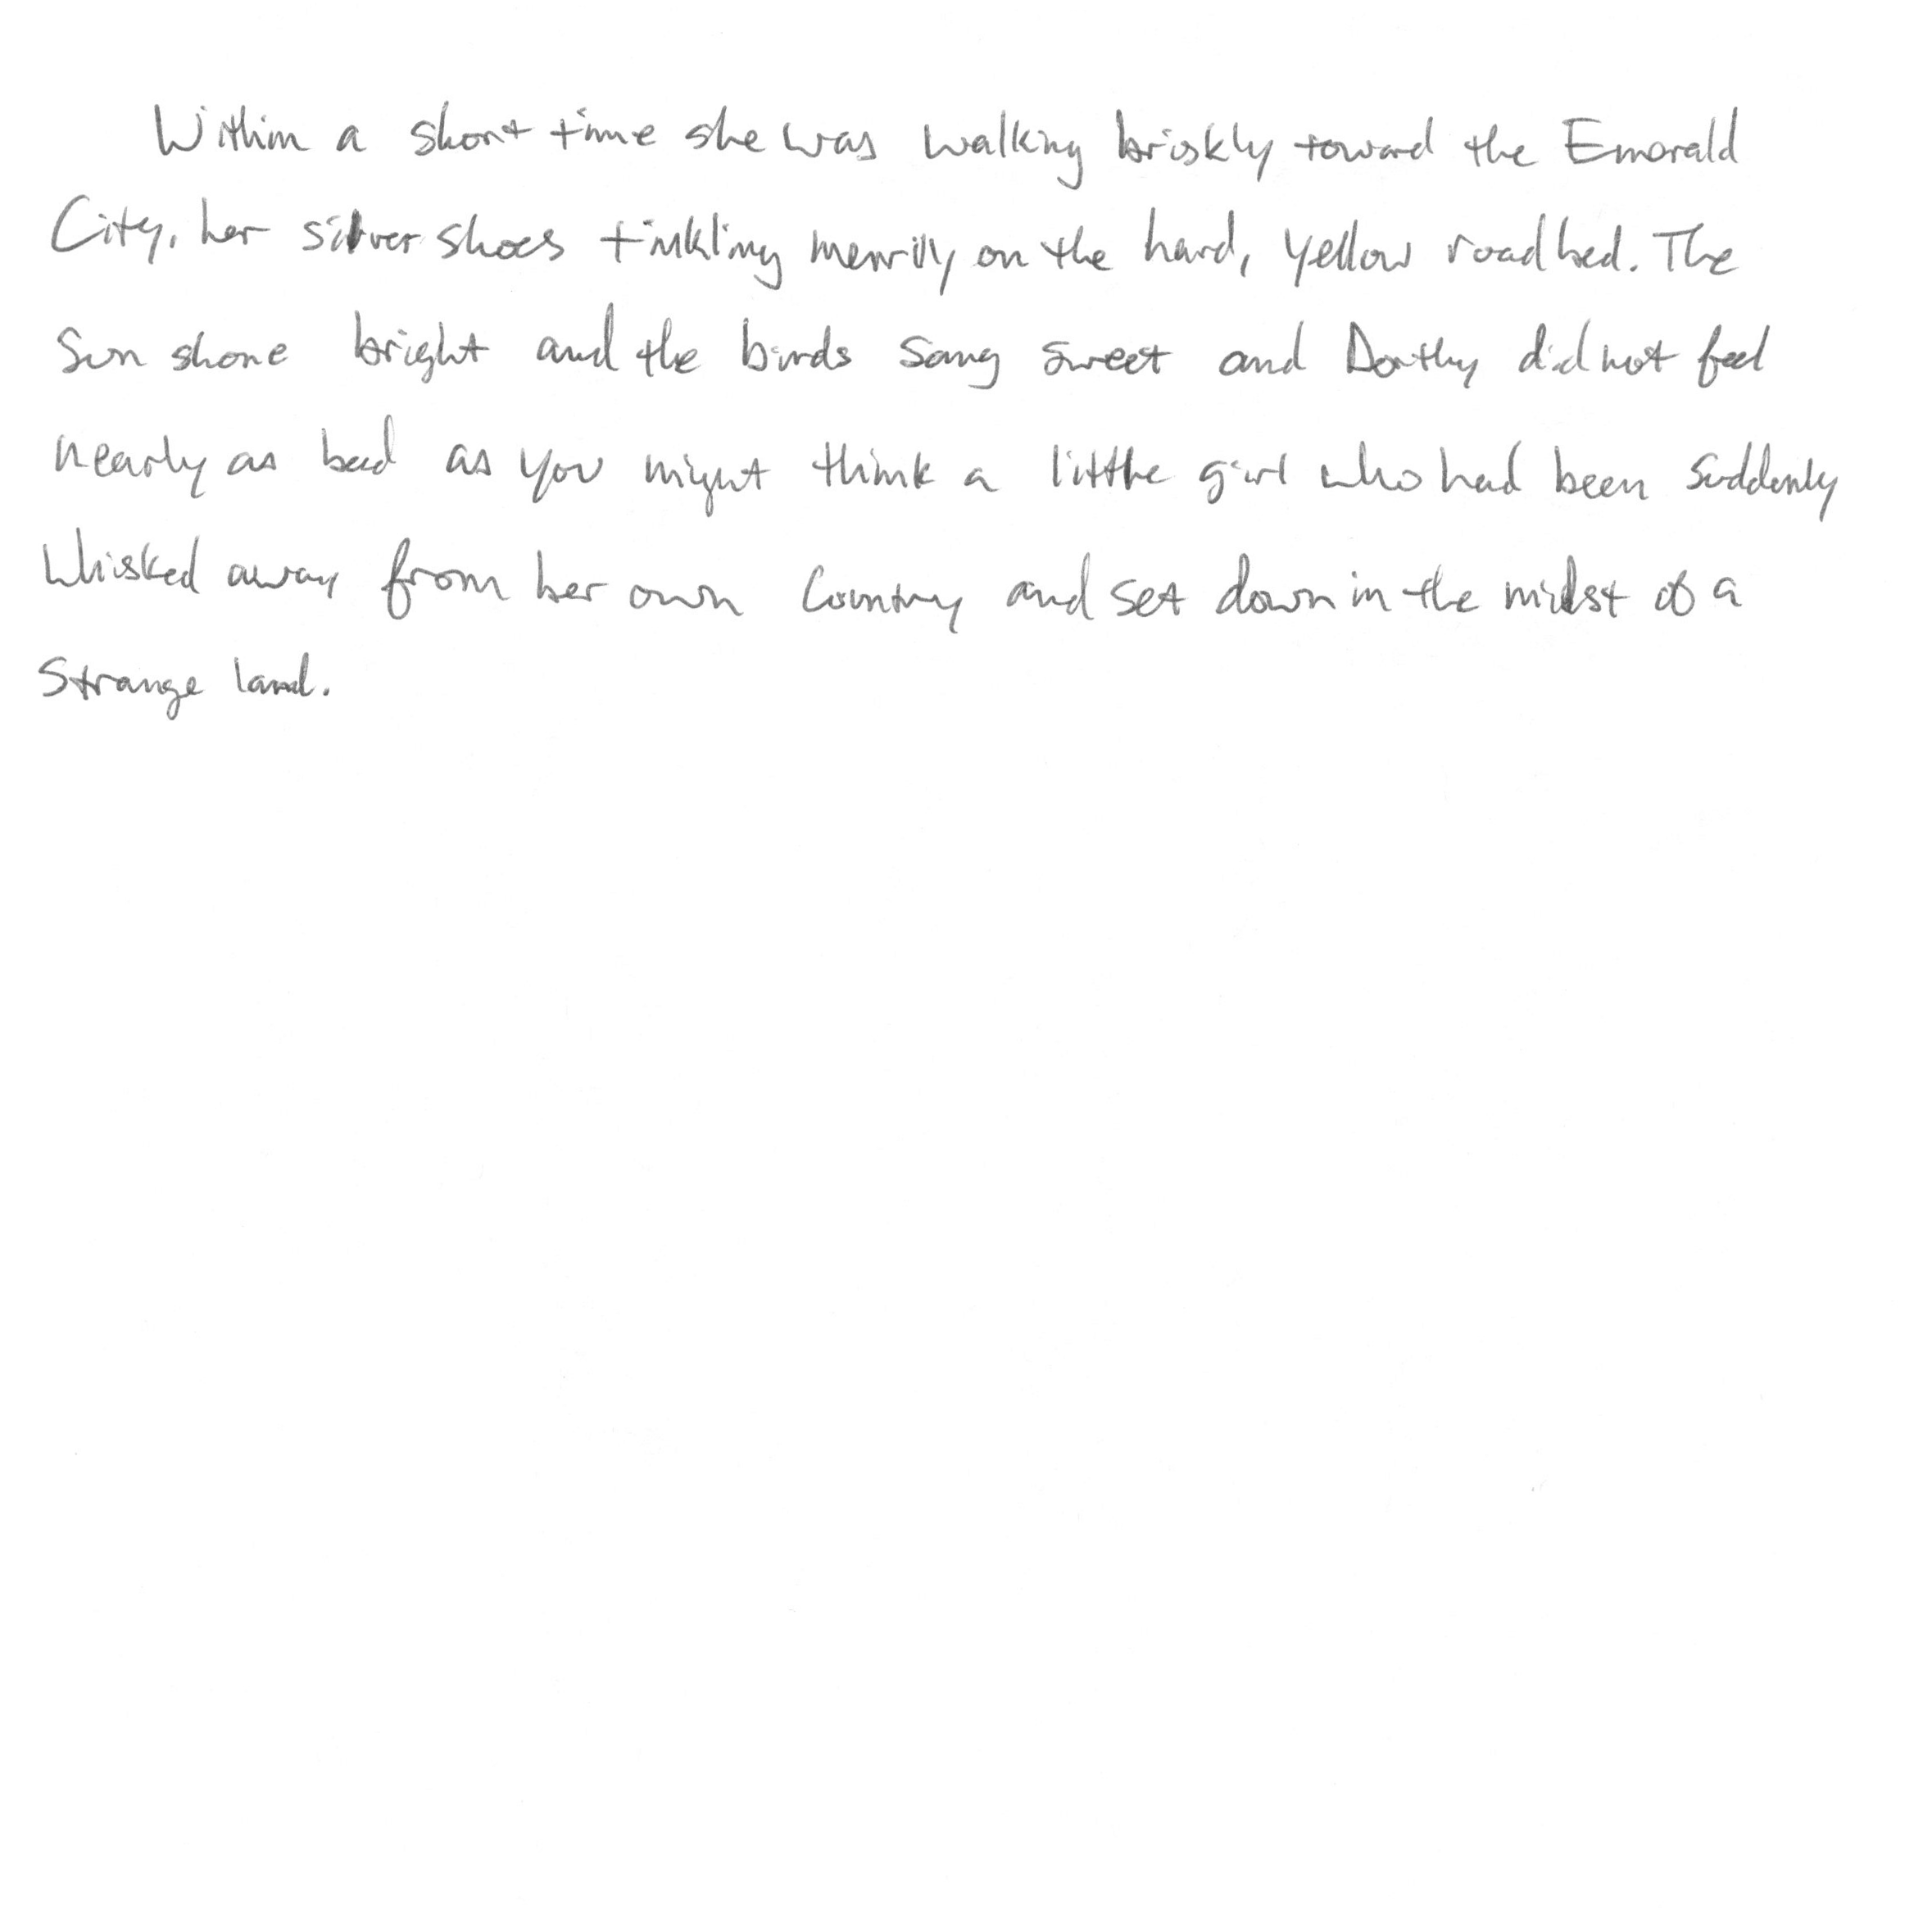 Within a short time she was walking briskly toward the Emerald
City, her silver shoes tinkling merrily on the hard, yellow roadbed. The
sun shone bright and the birds sang sweet and Dorthy did not feel
nearly as bad as you might think a little girl who had been suddenly
whisked away from her own country and set down in the midst of a
strange land.